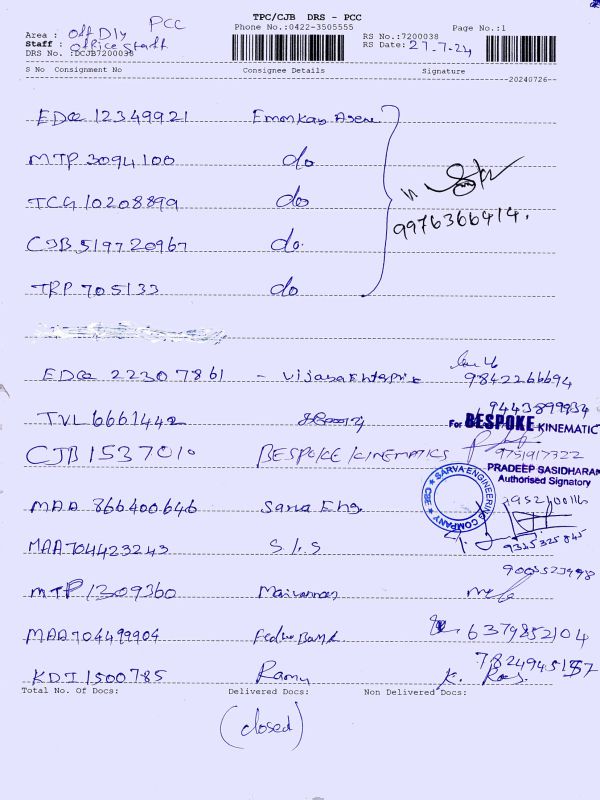 TPC/CJB DRS - PCC
Phone No.:0422-3505555
Page No.:1
Area : Off Dly PCC
RS No.:7200038
Staff : Office Staff
RS Date: 27.7.24
DRS No. :DCJB7200038
S No Consignment No Consignee Details Signature
20240726
EDQ 12349921
MTP 3094100 do
9976366414.
TCG 10208899 do
CJB 519720967 do.
TRP 705133 do
EDQ 22307861 - Vijaya Enterprise 9842266694
9443899934
TVL 6661442
For BESPOKE KINEMATIC
CJB 1537010 BESPOKE KINEMATICS 9751917322
PRADEEP SASIDHARAN
Authorised Signatory
SARVA ENGINEERING COMPANY CBE
MAA 866400646 Sarva Eng
MAA704423243 S.L.S 9325325845
MTP 1309360
MAA704499904 6379852104
KDI 1500785 Ramu K.
Total No. Of Docs: Delivered Docs: Non Delivered Docs:
(closed)